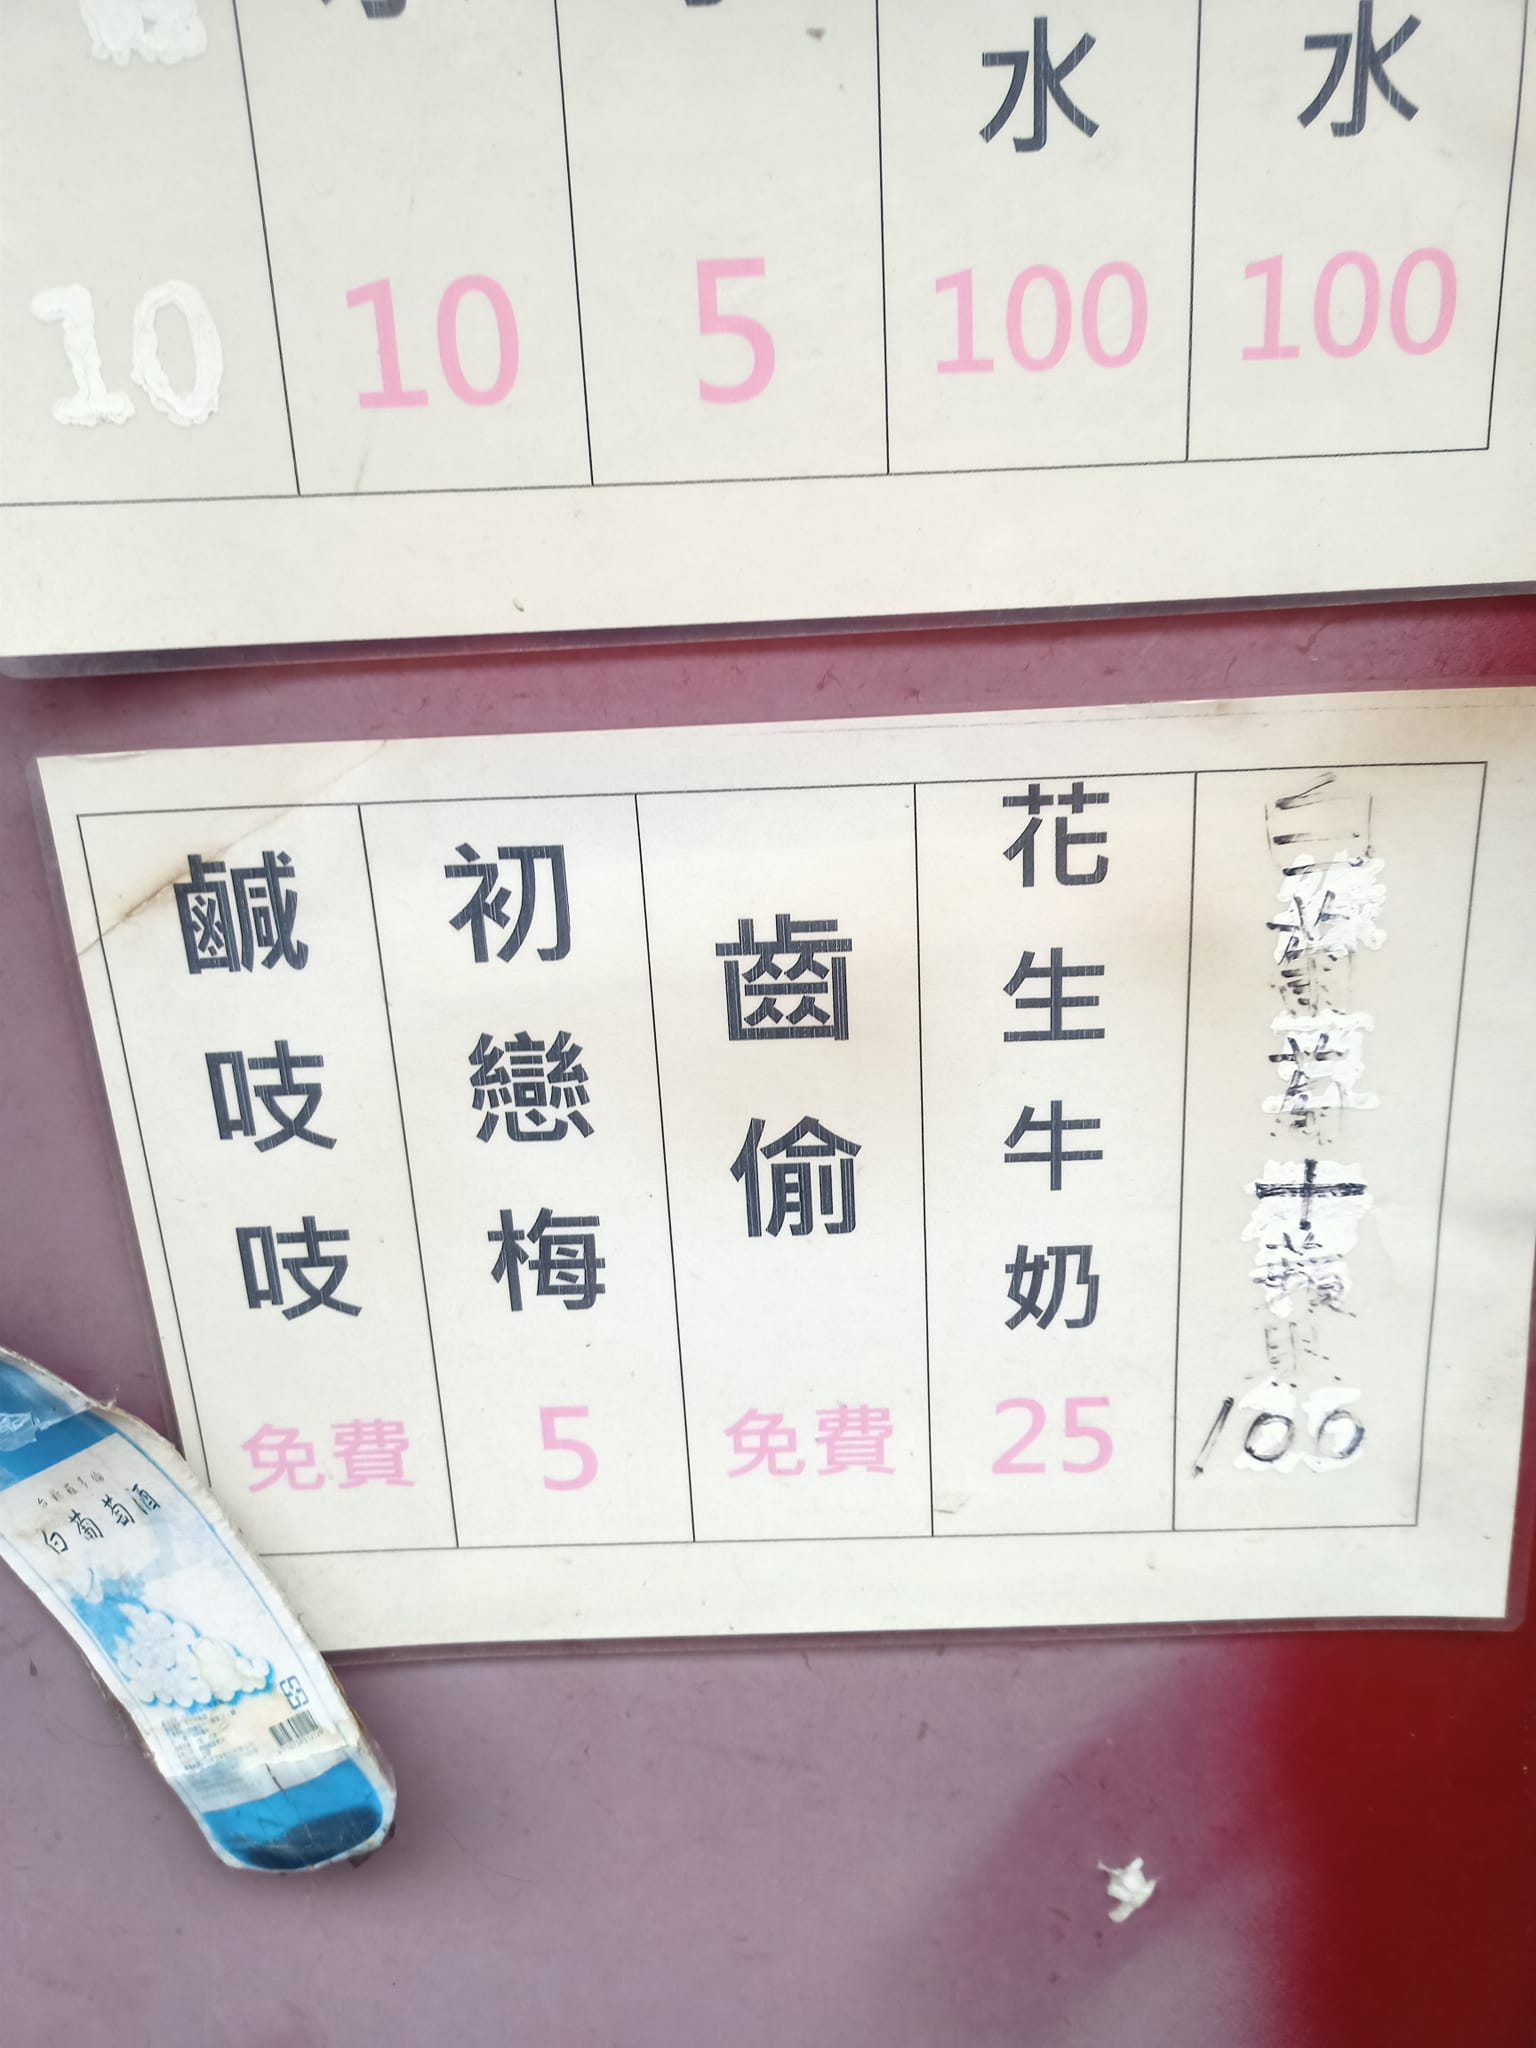 水
水
10
10
5
100
100
鹹吱吱
免費
初戀梅
5
齒偷
免費
花生牛奶
25
100
白葡萄酒